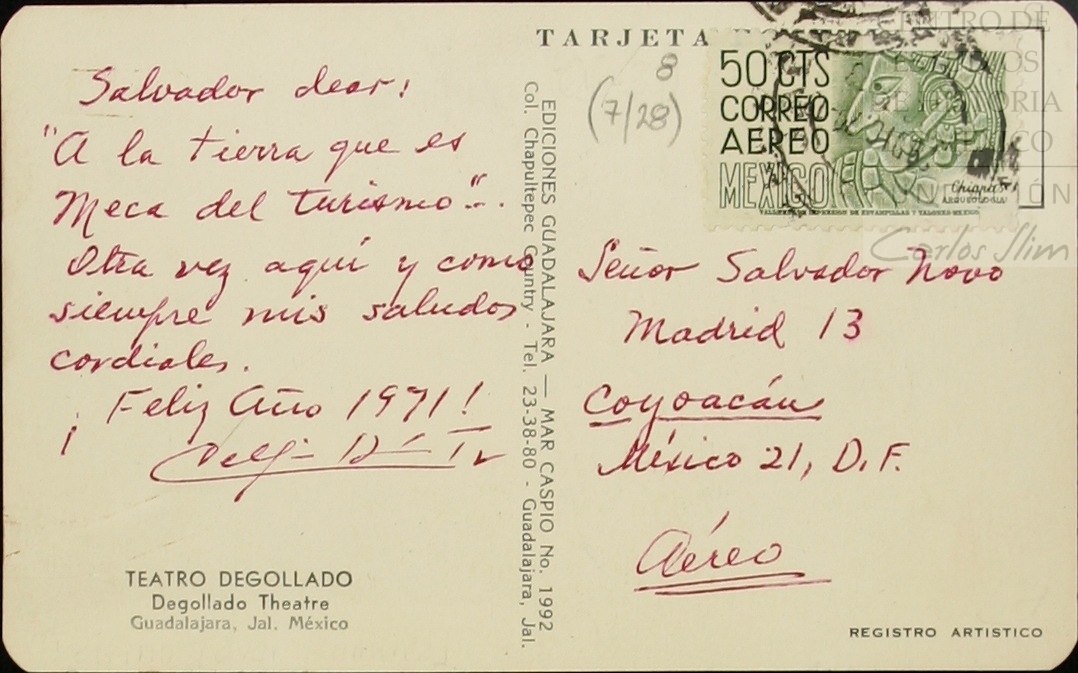 TARJETA
8
(7/28)
50 CTS
CORREO
AEREO
MEXICO
Chiapas
ARQUEOLOGIA
TALLERES DE IMPRESION DE ESTAMPILLAS Y VALORES-MEXICO
CENTRO DE
ESTUDIOS
DE HISTORIA
DE MÉXICO
FUNDACIÓN
Carlos Slim
Salvador dear:
"A la tierra que es
Meca del turismo"...
Otra vez aquí y como
siempre mis saludos
cordiales.
¡Feliz Año 1971!
EDICIONES GUADALAJARA — MAR CASPIO No. 1992
Col. Chapultepec Country - Tel. 23-38-80 - Guadalajara, Jal.
Señor Salvador Novo
Madrid 13
Coyoacán
México 21, D.F.
Aéreo
TEATRO DEGOLLADO
Degollado Theatre
Guadalajara, Jal. México
REGISTRO ARTISTICO